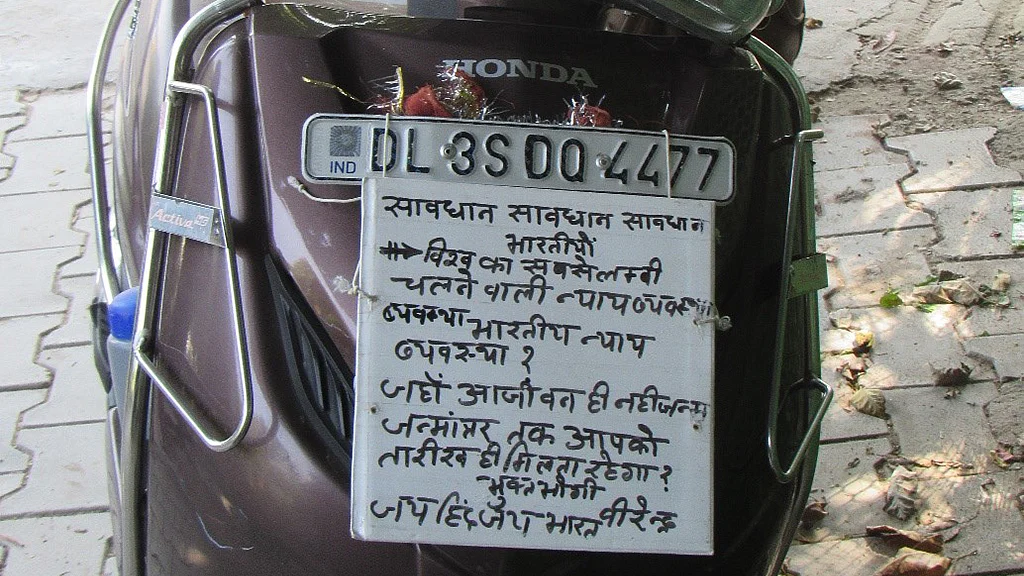 HONDA
IND DL 3S DQ 4477
Activa
सावधान सावधान सावधान
भारतीयों
विश्व का सबसे लम्बी
चलने वाली न्याय व्यवस्था
व्यवस्था भारतीय न्याय
व्यवस्था ?
जहाँ आजीवन ही नही जन्म
जन्मांतर तक आपको
तारीख ही मिलता रहेगा ?
भुक्तभोगी
जय हिंद जय भारत वीरेन्द्र